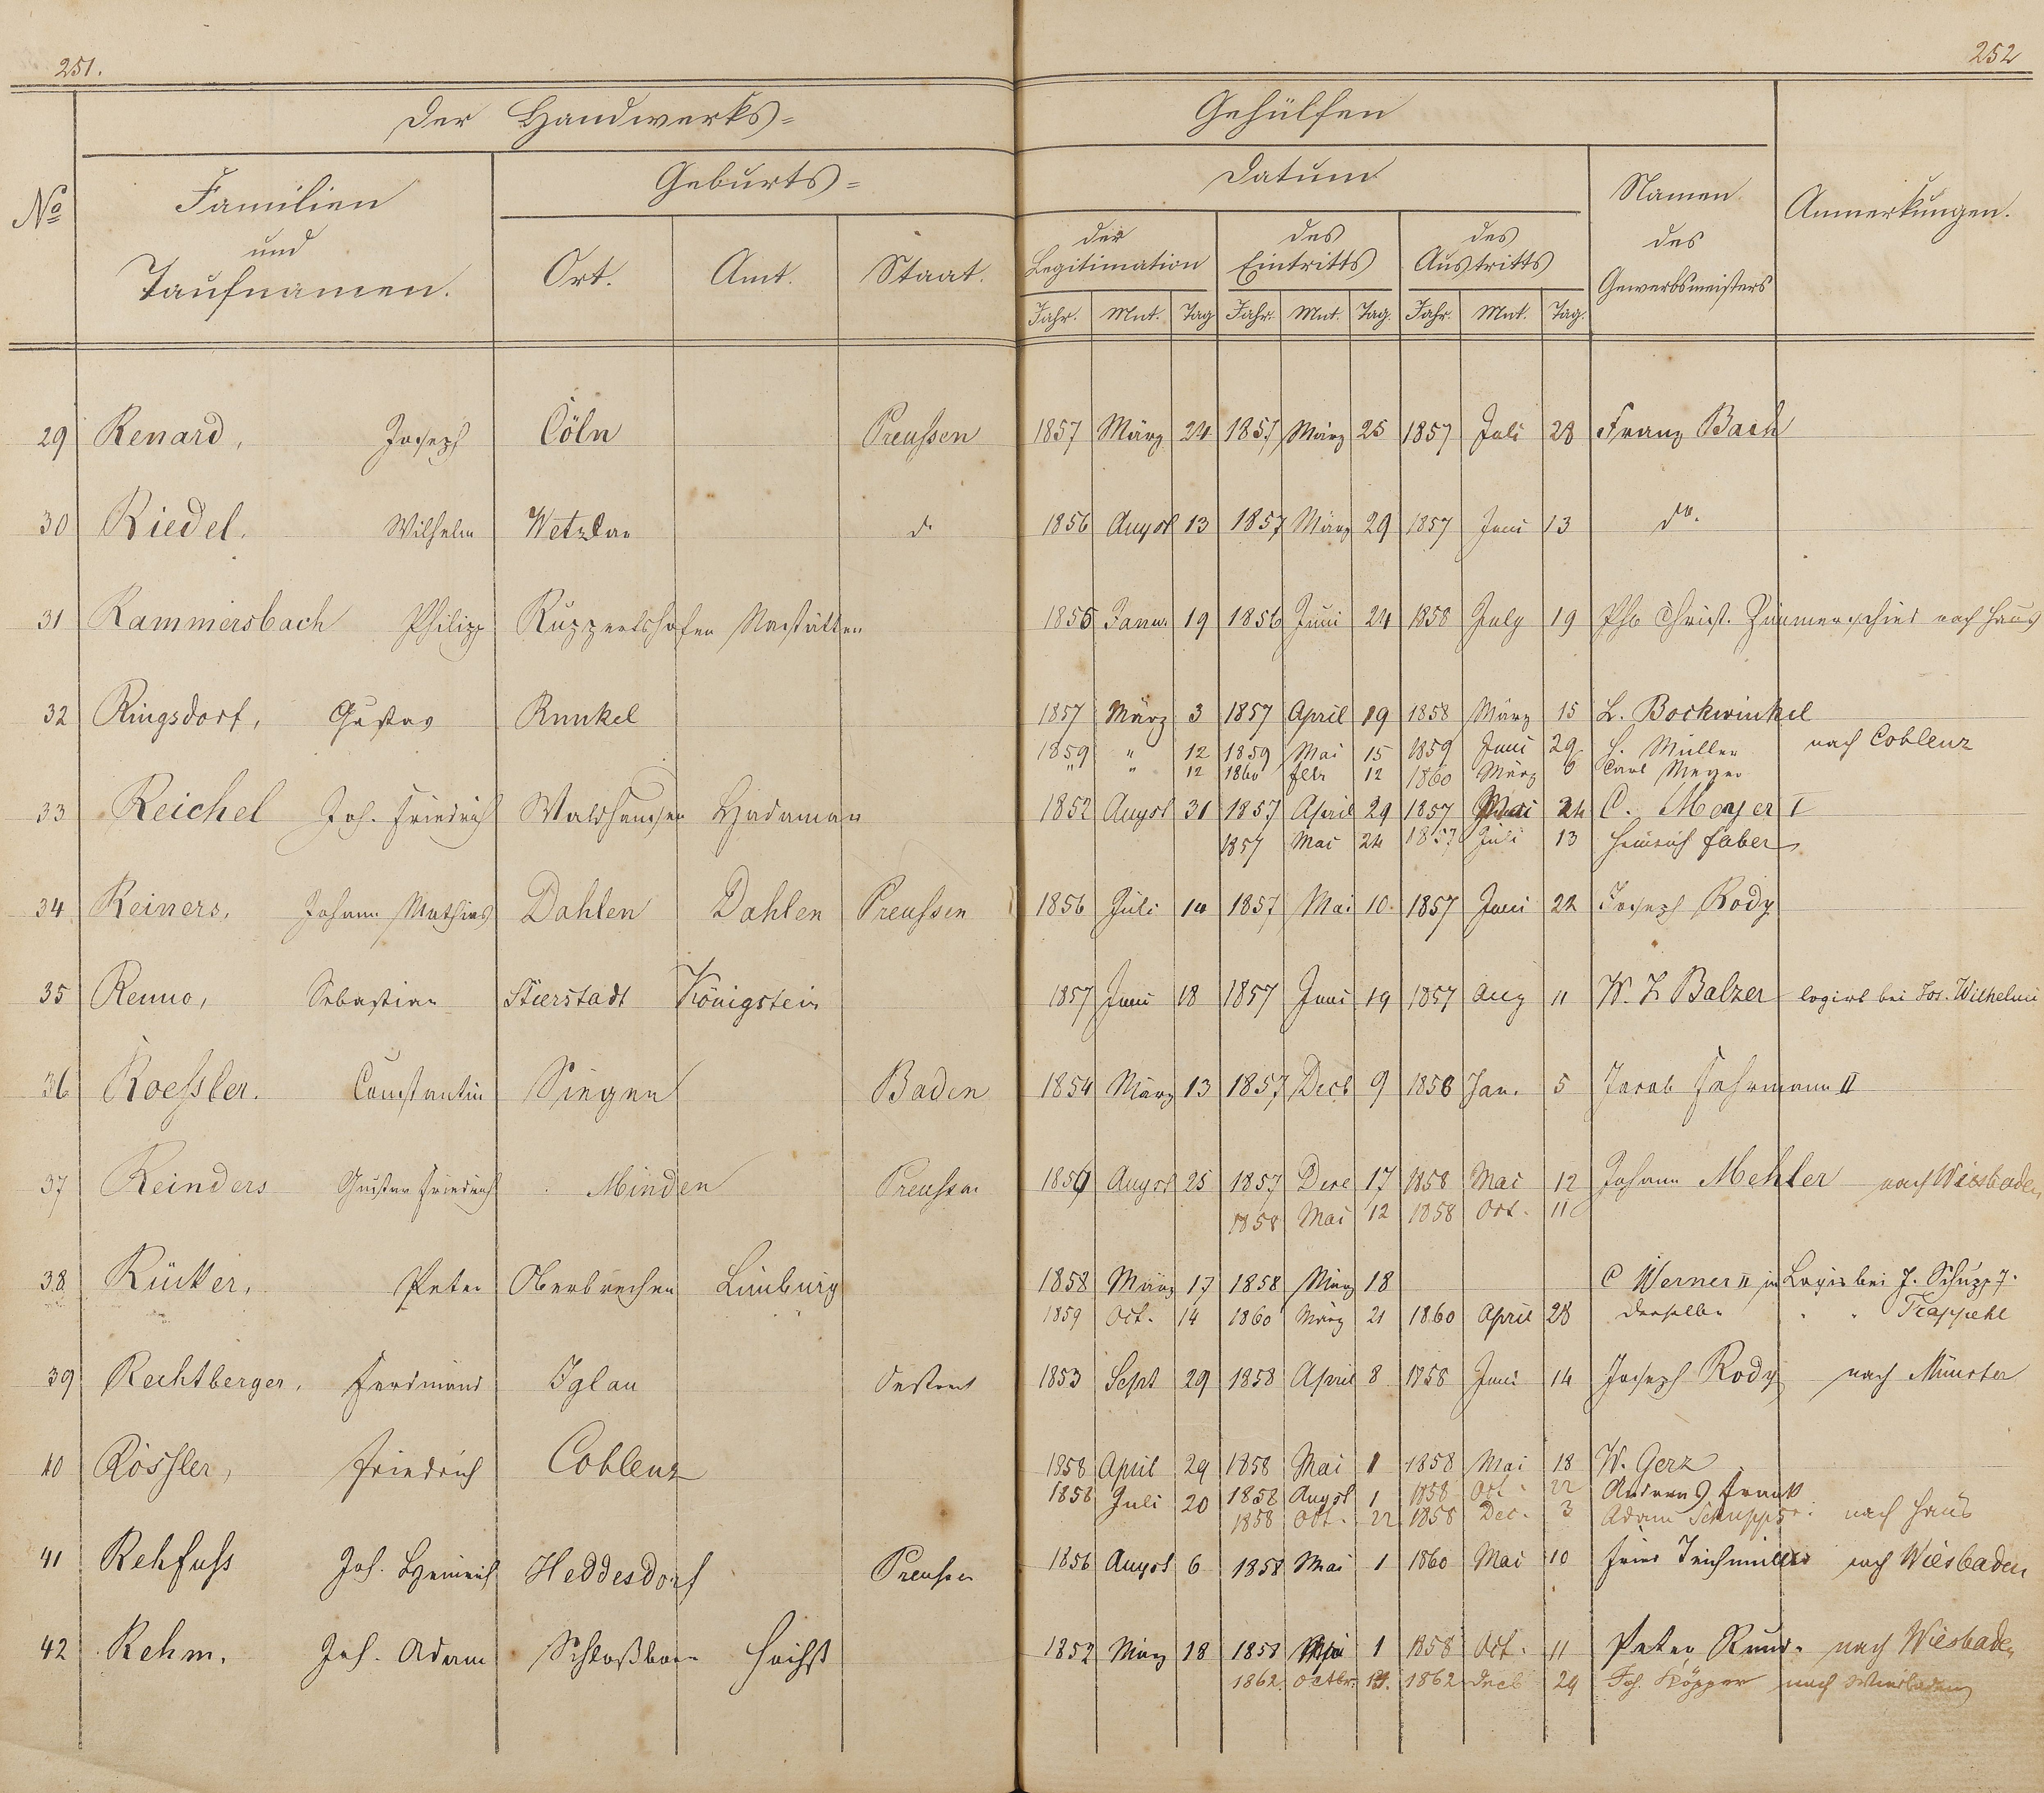 251.
252
Der Handwerks=
Gehülfen
No
Familien
und
Taufnamen.
Geburts=
Ort.
Amt.
Staat.
Datum
der
Legitimation
des
Eintritts
des
Austritts
Jahr. Mnt. Tag Jahr. Mnt. Tag. Jahr. Mnt. Tag.
Namen
des
Gewerbsmeisters
Anmerkungen.
29 Renard, Joseph Cöln Preußen 1857 März 24 1857 März 25 1857 Juli 28 Franz Bach
30 Riedel. Wilhelm Wetzlar do 1856 Augst 13 1857 März 29 1857 Juni 13 do.
31 Rammersbach Philipp Ruppertshofen Nastätten 1856 Janu. 19 1856 Juni 24 1858 July 19 Phs Christ. Zimmerschied nach Haus
32 Ringsdorf, Gustav Runkel 1857 März 3 1857 April 19 1858 März 15 L. Bockwinkel
1859 " 12 1859 Mai 15 1859 Juni 29 H. Müller nach Coblenz
" " 12 1860 febr 12 1860 März 6 Carl Meyer
33 Reichel Joh. Friedrich Waldhausen Hadamar 1852 Augst 31 1857 April 29 1857 Mai 24 C. Meyer I
1857 Mai 24 1857 Juli 13 Heinrich Faber
34 Reiners, Johann Mathias Dahlen Dahlen Preußen 1856 Juli 14 1857 Mai 10. 1857 Juni 22 Joseph Rody
35 Renno, Sebastian Stierstadt Königstein 1857 Juni 18 1857 Juni 19 1857 Aug 11 W. L Balzer logirt bei Jos. Wilhelmi
36 Roeßler. Constantin Singen Baden 1854 März 13 1857 Decb 9 1858 Jan. 5 Jacob Fuhrmann II
37 Reinders Gustav Friedrich Minden Preußen 1856 Augst 25 1857 Dece 17 1858 Mai 12 Johann Mehler nach Wiesbaden
1858 Mai 12 1858 Oct. 11
38 Rücker, Peter Oberbrechen Limburg 1858 März 17 1858 März 18 C Werner II in Logis bei J. Schupp 7.
1859 Oct. 14 1860 März 21 1860 April 28 derselbe " " Trappehl
39 Rechtberger, Ferdinand Iglau Oestreich 1853 Sept 29 1858 April 8 1858 Juni 14 Joseph Rody nach Münster
40 Rössler, Friedrich Coblenz 1858 April 29 1858 Mai 1 1858 Mai 18 W. Gerz
1858 Juli 20 1858 Augst 1 1858 Oct. 22 Andreas Frank
1858 Oct. 22 1858 Dec. 3 Adam Schupp nach Haus
41 Rehfuß Joh. Heinrich Heddesdorf Preußen 1856 Augst 6 1858 Mai 1 1860 Mai 10 Fried Teichmüller nach Wiesbaden
42 Rehm, Joh. Adam Schloßborn Höchst 1852 März 18 1858 Mai 1 1858 Oct. 11 Peter nach Wiesbaden
1862. Octbr. 1862 Decb 24 Joh. nach Wiesbaden